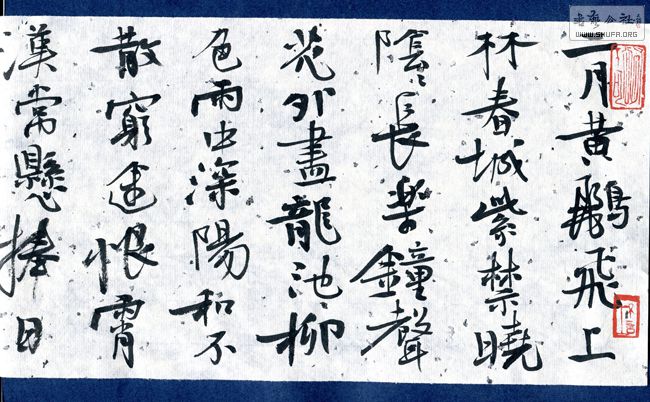 二月黃鸝飛上
林春城紫禁曉
陰〻長樂鐘聲
花外盡龍池柳
色雨中深陽和不
散窮途恨霄
漢常懸捧日
WWW.SHUFA.ORG